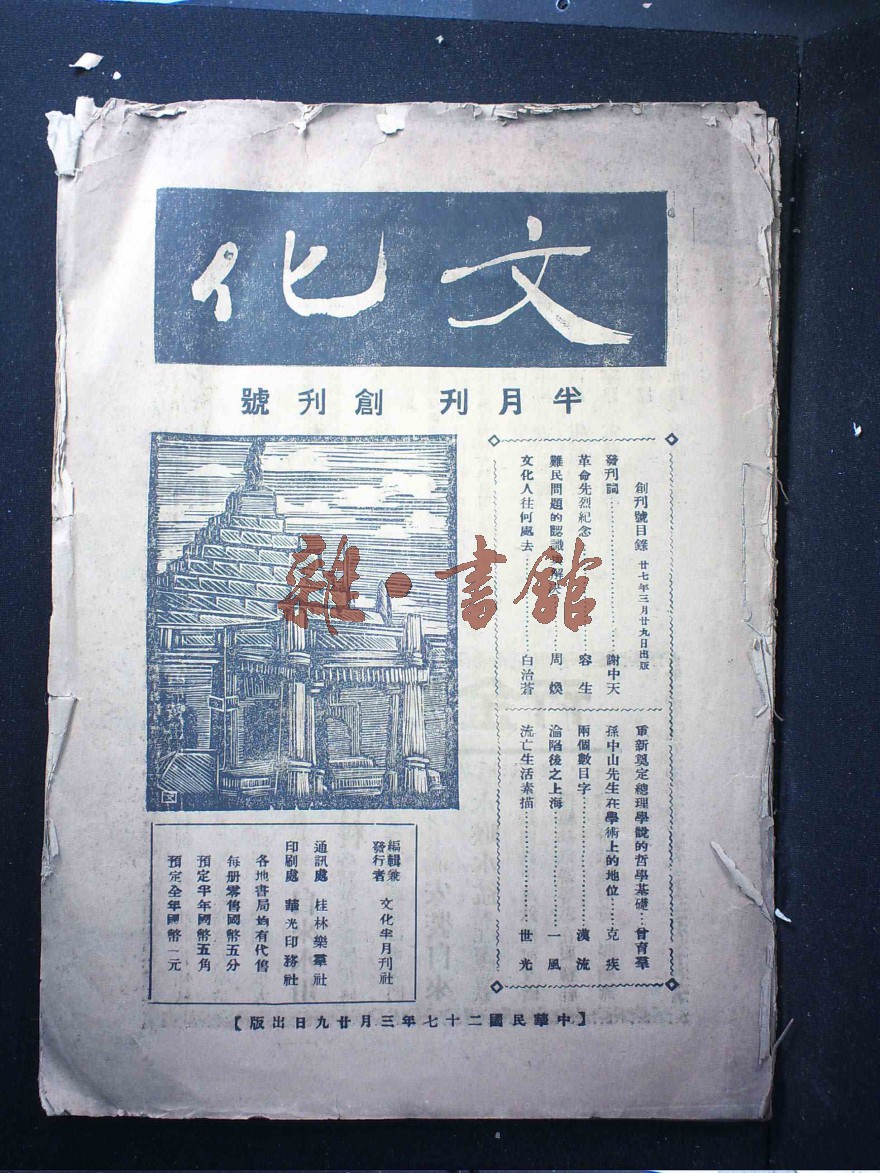 文化
半月刊 創刊號
創刊號目錄 廿七年三月廿九日出版
發刊詞……謝中天
革命先烈紀念……容生
難民問題的認識……周煥
文化人往何處去……白治蒼
重新奠定總理學說的哲學基礎…曾育羣
孫中山先生在學術上的地位……克疾
兩個數目字……漢流
淪陷後之上海……一風
流亡生活素描……世光
雜·書館
編輯兼發行者 文化半月刊社
通訊處 桂林樂羣社
印刷處 華光印務社
各地書局均有代售
每册零售國幣五分
預定半年國幣五角
預定全年國幣一元
【中華民國二十七年三月廿九日出版】